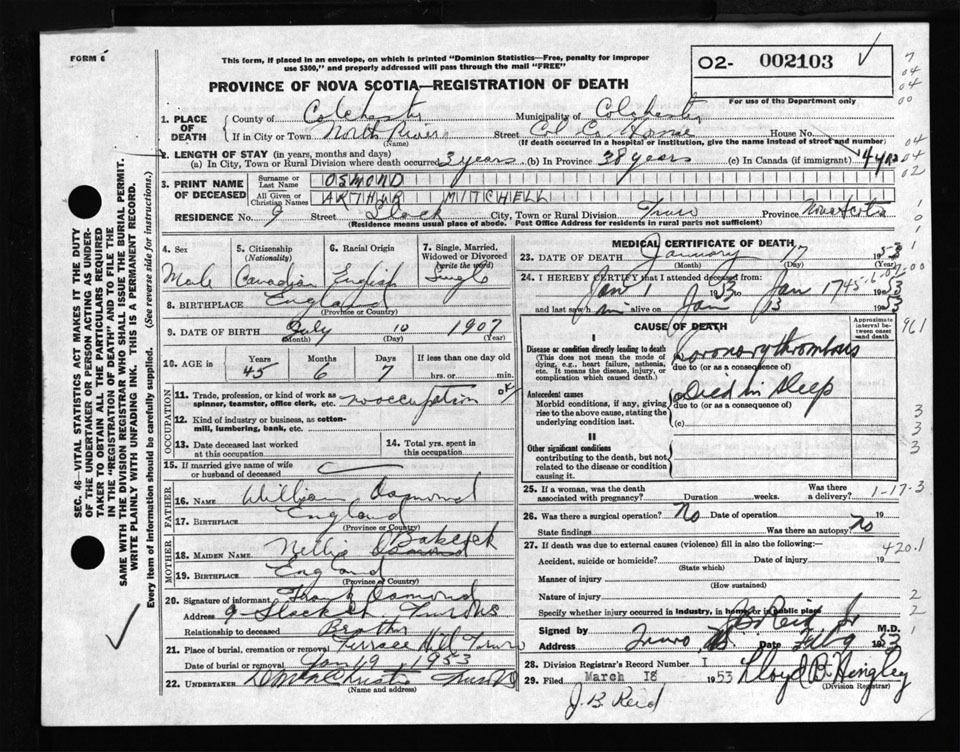 FORM 6
This form, if placed in an envelope, on which is printed "Dominion Statistics—Free, penalty for improper
use $300," and properly addressed will pass through the mail "FREE"
02- 002103
For use of the Department only
PROVINCE OF NOVA SCOTIA—REGISTRATION OF DEATH
1. PLACE OF DEATH
County of Colchester Municipality of Colchester
If in City or Town North River Street Col Co. Home House No.
(Name) (If death occurred in a hospital or institution, give the name instead of street and number)
2. LENGTH OF STAY (in years, months and days)
(a) In City, Town or Rural Division where death occurred 3 years (b) In Province 38 years (c) In Canada (if immigrant)
3. PRINT NAME OF DECEASED
Surname or Last Name OSMOND
All Given or Christian Names ARTHUR MITCHELL
RESIDENCE No. 9 Street Slack City, Town or Rural Division Truro Province Nova Scotia
(Residence means usual place of abode. Post Office Address for residents in rural parts not sufficient)
4. Sex Male
5. Citizenship (Nationality) Canadian
6. Racial Origin English
7. Single, Married, Widowed or Divorced (write the word) Single
8. BIRTHPLACE England
(Province or Country)
9. DATE OF BIRTH July 10 1907
(Month) (Day) (Year)
10. AGE in Years Months Days If less than one day old
45 6 7 hrs. or min.
OCCUPATION
11. Trade, profession, or kind of work as
spinner, teamster, office clerk, etc. no occupation
12. Kind of industry or business, as cotton-
mill, lumbering, bank, etc.
13. Date deceased last worked
at this occupation
14. Total yrs. spent in
this occupation
15. If married give name of wife
or husband of deceased
FATHER
16. NAME William Osmond
17. BIRTHPLACE England
(Province or Country)
MOTHER
18. MAIDEN NAME Nellie Osmond Babcock
19. BIRTHPLACE England
(Province or Country)
20. Signature of informant Frank Osmond
Address 9 Slack St Truro NS
Relationship to deceased Brother
21. Place of burial, cremation or removal Terrace Hill Truro
Date of burial or removal Jan 19 1953
22. UNDERTAKER Truro NS
(Name and address)
MEDICAL CERTIFICATE OF DEATH
23. DATE OF DEATH January 17 1953
(Month) (Day) (Year)
24. I HEREBY CERTIFY that I attended deceased from
Jan 1 1953 to Jan 17 1953
and last saw him alive on Jan 13 1953
CAUSE OF DEATH
Approximate interval between onset and death
I
Disease or condition directly leading to death
(This does not mean the mode of
dying, e.g., heart failure, asthenia,
etc. It means the disease, injury, or
complication which caused death.)
(a) Coronary thrombosis
due to (or as a consequence of)
Antecedent causes
Morbid conditions, if any, giving
rise to the above cause, stating the
underlying condition last.
(b) Died in sleep
due to (or as a consequence of)
(c)
II
Other significant conditions
contributing to the death, but not
related to the disease or condition
causing it.
25. If a woman, was the death
associated with pregnancy? Duration weeks. Was there a delivery?
1-17-3
26. Was there a surgical operation? No Date of operation 19
State findings Was there an autopsy? No
27. If death was due to external causes (violence) fill in also the following:—
420.1
Accident, suicide or homicide? Date of injury 19
(State which)
Manner of injury
(How sustained)
Nature of injury
Specify whether injury occurred in industry, in home or in public place
Signed by J B Reid Jr M.D.
Address Truro NS Date Feb 9 1953
28. Division Registrar's Record Number 1
29. Filed March 18 1953 Lloyd B. Hingley
(Division Registrar)
J. B. Reid
SEC. 46—VITAL STATISTICS ACT MAKES IT THE DUTY
OF THE UNDERTAKER OR PERSON ACTING AS UNDER-
TAKER TO OBTAIN ALL THE PARTICULARS REQUIRED
IN THE "REGISTRATION OF DEATH" AND TO FILE THE
SAME WITH THE DIVISION REGISTRAR WHO SHALL ISSUE THE BURIAL PERMIT.
WRITE PLAINLY WITH UNFADING INK. THIS IS A PERMANENT RECORD.
Every item of Information should be carefully supplied. (See reverse side for instructions.)